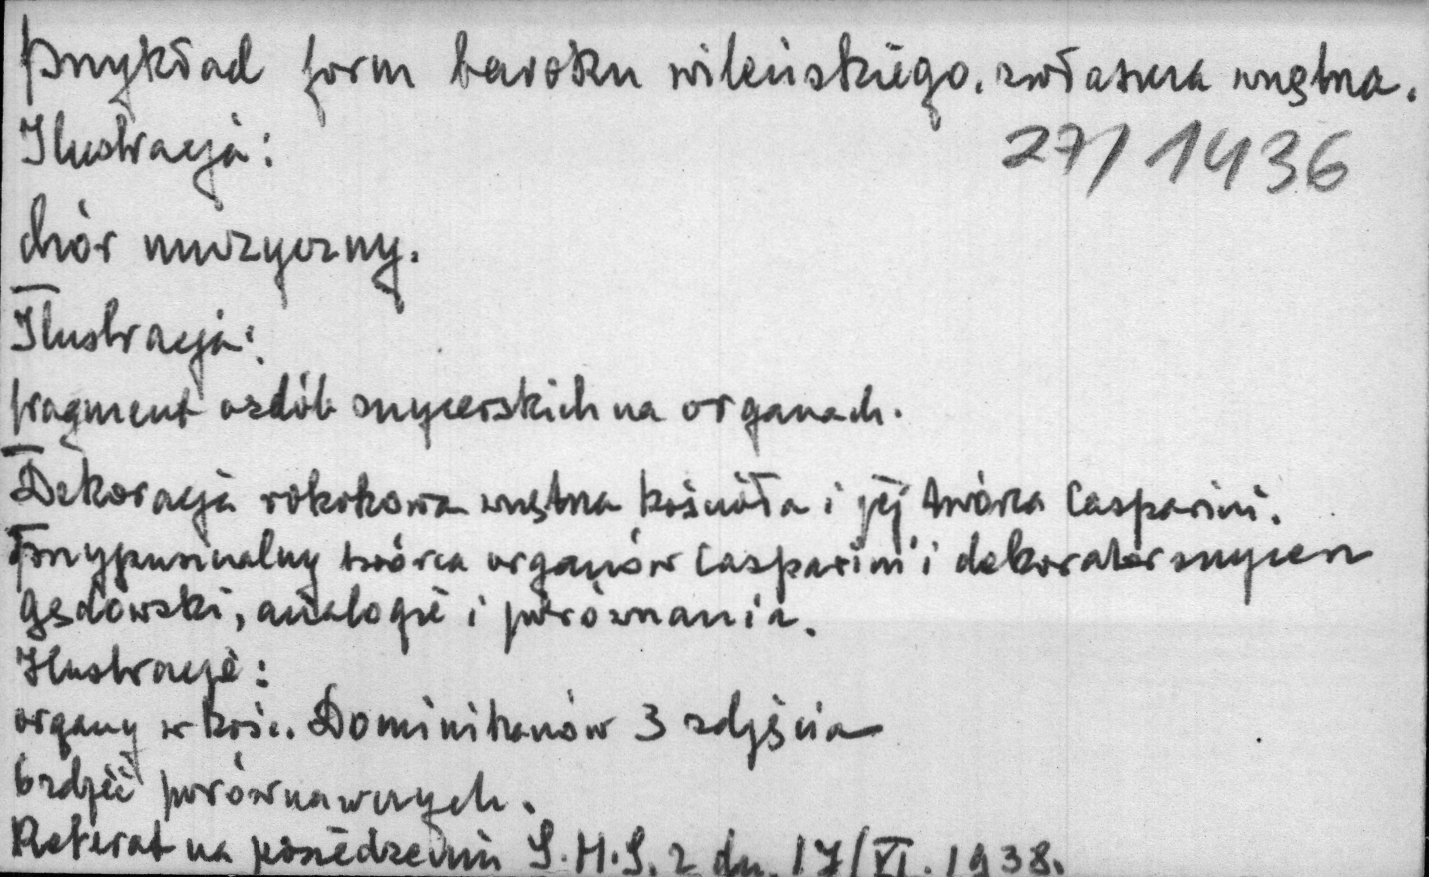 Przykład form baroku wileńskiego, zwłaszcza wnętrza.
Ilustracja:
27/1436
chór muzyczny.
Ilustracja:
fragment ozdób snycerskich na organach.
Dekoracja rokokowa wnętrza kościoła i jej twórca Casparini.
Przypuszczalny twórca organów Casparini i dekorator snycerz
Gędowski, analogie i porównania.
Ilustracje:
organy w kośc. Dominikanów 3 zdjęcia
6 zdjęć porównawczych.
Referat na posiedzeniu S.H.S. z dn. 17/VI. 1938.